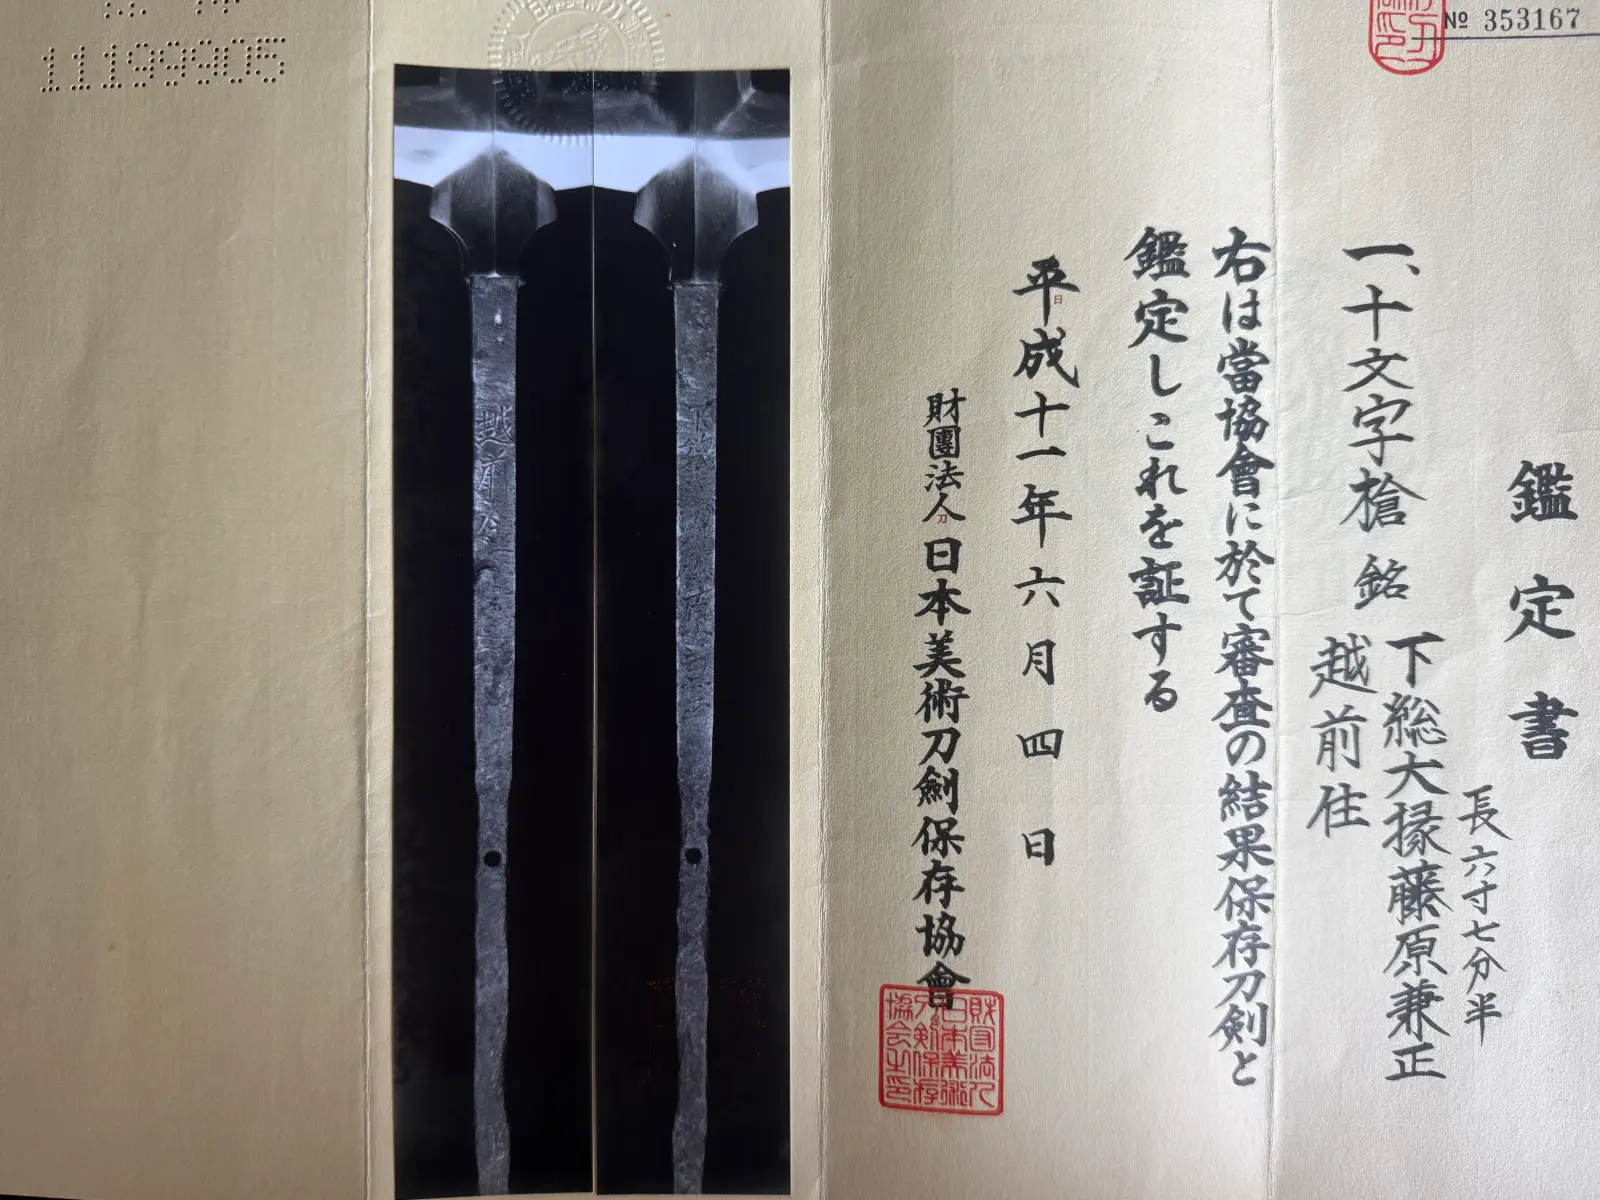 № 353167
鑑定書
長六寸七分半
一、十文字槍 銘 下総大掾藤原兼正
越前住
右は當協會に於て審査の結果保存刀剣と
鑑定しこれを証する
平成十一年六月四日
財團法人日本美術刀劍保存協會
財団法人日本美術刀剣保存協会之印
越前住
11199905